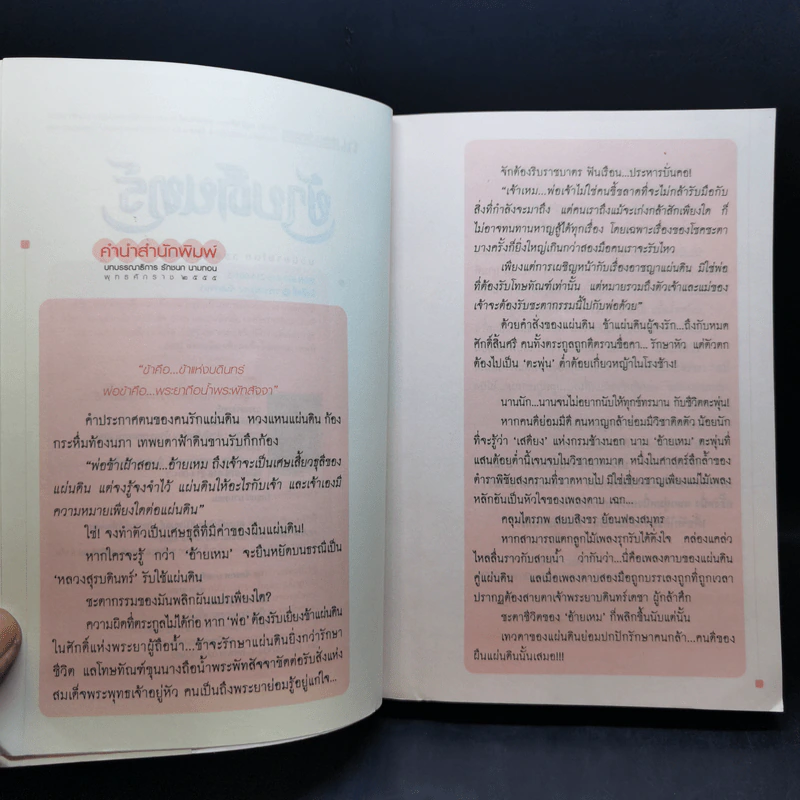 คำนำสำนักพิมพ์
บทบรรณาธิการ รักชนก นามทอน
พุทธศักราช ๒๕๕๕
“ข้าคือ...ข้าแห่งบดินทร์
พ่อข้าคือ...พระยาถือน้ำพระพัทสัจจา”
คำประกาศตนของคนรักแผ่นดิน หวงแหนแผ่นดิน ก้อง
กระหึ่มท้องนภา เทพยดาฟ้าดินขานรับกึกก้อง
“พ่อข้าเฝ้าสอน...อ้ายเหม ถึงเจ้าจะเป็นเศษเสี้ยวธุลีของ
แผ่นดิน แต่จงรู้จงจำไว้ แผ่นดินให้อะไรกับเจ้า และเจ้าเองมี
ความหมายเพียงใดต่อแผ่นดิน”
ใช่! จงทำตัวเป็นเศษธุลีที่มีค่าของผืนแผ่นดิน!
หากใครจะรู้ กว่า ‘อ้ายเหม’ จะยืนหยัดบนธรณีเป็น
‘หลวงสุรบดินทร์’ รับใช้แผ่นดิน
ชะตากรรมของมันพลิกผันแปรเพียงใด?
ความผิดที่ตระกูลไม่ได้ก่อ หาก ‘พ่อ’ ต้องรับเยี่ยงข้าแผ่นดิน
ในศักดิ์แห่งพระยาผู้ถือน้ำ...ข้าจะรักษาแผ่นดินยิ่งกว่ารักษา
ชีวิต แลโทษทัณฑ์ขุนนางถือน้ำพระพัทสัจจาขัดต่อรับสั่งแห่ง
สมเด็จพระพุทธเจ้าอยู่หัว คนเป็นถึงพระยาย่อมรู้อยู่แก่ใจ...
จักต้องริบราชบาตร ฟันเรือน...ประหารบั่นคอ!
“เจ้าเหม...พ่อเจ้าไม่ใช่คนขี้ขลาดที่จะไม่กล้ารับมือกับ
สิ่งที่กำลังจะมาถึง แต่คนเราถึงแม้จะเก่งกล้าสักเพียงใด ก็
ไม่อาจทนทานหาญสู้ได้ทุกเรื่อง โดยเฉพาะเรื่องของโชคชะตา
บางครั้งก็ยิ่งใหญ่เกินกว่าสองมือเราจะรับไหว
เพียงแต่การเผชิญหน้ากับเรื่องอาชญาแผ่นดิน มิใช่พ่อ
ที่ต้องรับโทษทัณฑ์เท่านั้น แต่หมายรวมถึงตัวเจ้าและแม่ของ
เจ้าจะต้องรับชะตากรรมนี้ไปกับพ่อด้วย”
ด้วยคำสั่งของแผ่นดิน ข้าแผ่นดินผู้จงรัก...ถึงกับหมด
ศักดิ์สิ้นศรี คนทั้งตระกูลถูกตีตรวนชื่อคา... รักษาหัว แต่ตัวตก
ต้องไปเป็น ‘ตะพุ่น’ ต่ำต้อยเกี่ยวหญ้าในโรงช้าง!
นานนัก...นานจนไม่อยากนับให้ทุกข์ทรมาน กับชีวิตตะพุ่น!
หากคนดีย่อมมีดี คนหาญกล้าย่อมมีวิชาติดตัว น้อยนัก
ที่จะรู้ว่า ‘เสดียง’ แห่งกรมช้างนอก นาม ‘อ้ายเหม’ ตะพุ่นที่
แสนต้อยต่ำนี้เจนจบในวิชาอาทมาต หนึ่งในศาสตร์ลึกล้ำของ
ตำราพิชัยสงครามที่ขาดหายไป มิใช่เชี่ยวชาญเพียงแม่ไม้เพลง
หลักอันเป็นหัวใจของเพลงดาบ เฉก...
คลุมไตรภพ สยบสิงขร ย้อนฟองสมุทร
หากสามารถแตกลูกไม้เพลงรุกรับได้ดั่งใจ คล่องแคล่ว
ไหลลื่นราวกับสายน้ำ ว่ากันว่า...นี่คือเพลงดาบของแผ่นดิน
คู่แผ่นดิน แลเมื่อเพลงดาบสองมือถูกบรรเลงถูกที่ถูกเวลา
ปรากฏต้องสายตาเจ้าพระยาบดินทร์เดชา ผู้กล้าศึก
ชะตาชีวิตของ ‘อ้ายเหม’ ก็พลิกขึ้นนับแต่นั้น
เทวดาของแผ่นดินย่อมปกปักรักษาคนกล้า...คนดีของ
ผืนแผ่นดินนั้นเสมอ!!!